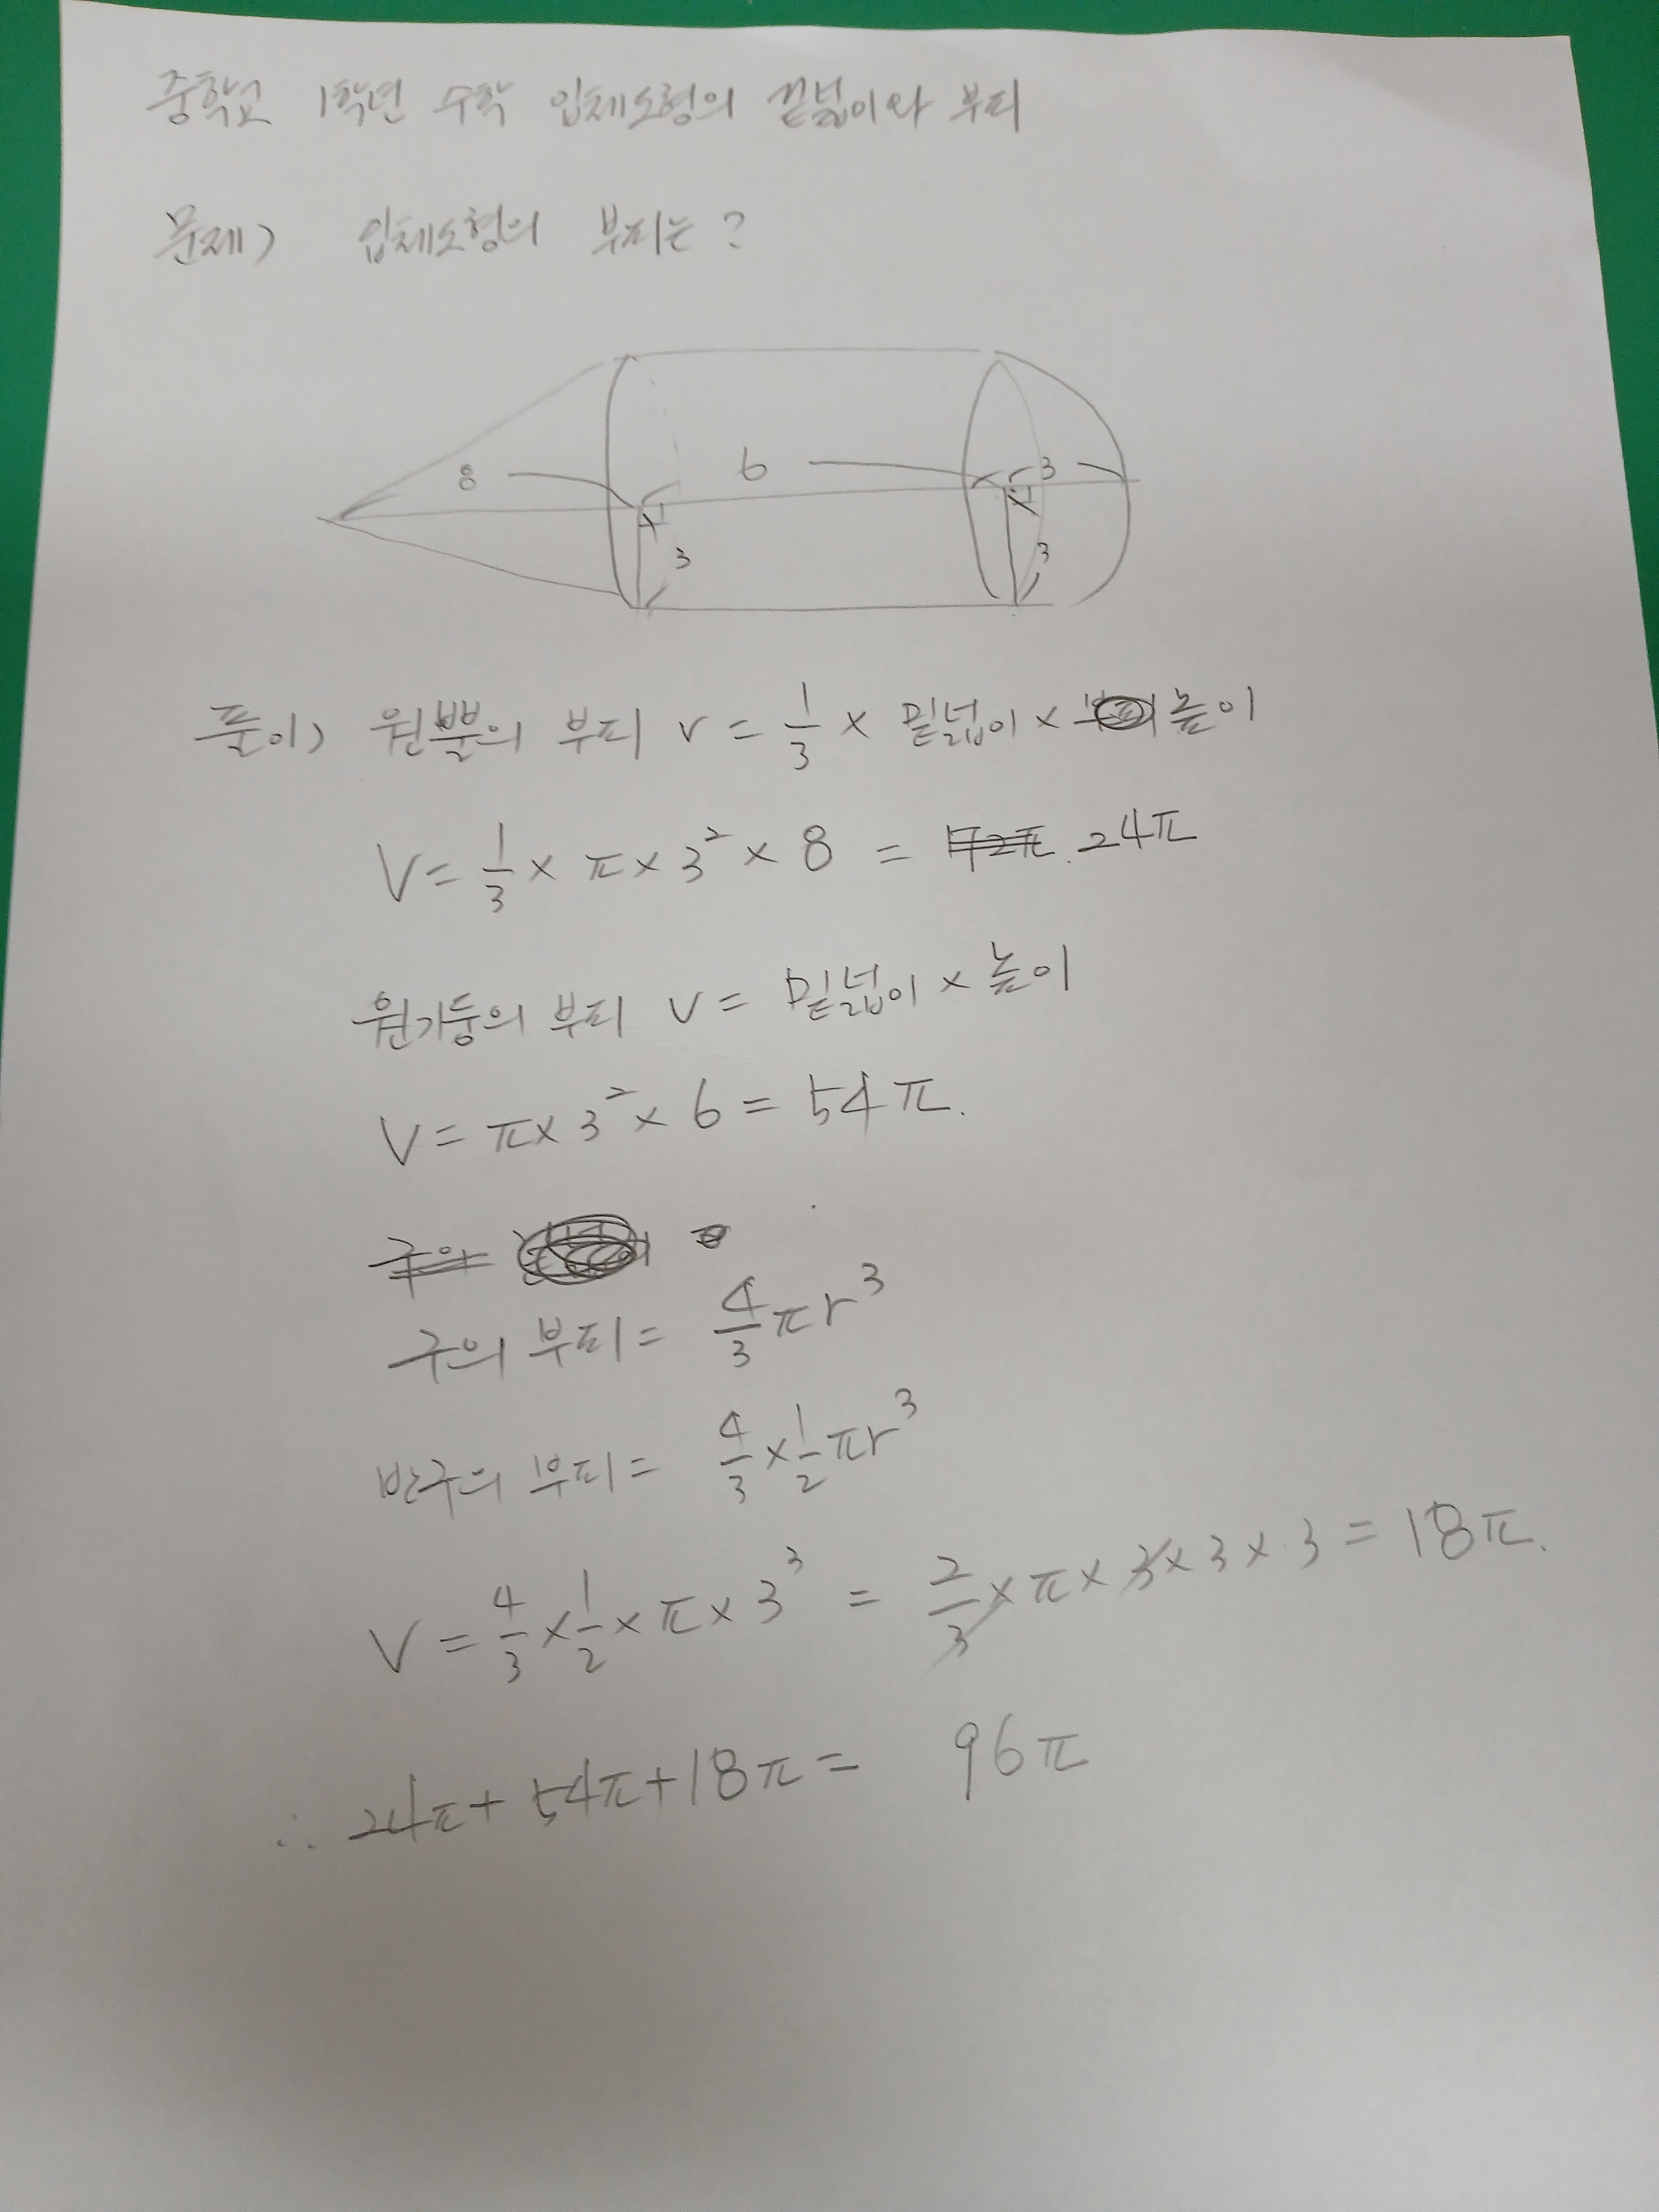 중학교 1학년 수학 입체도형의 겉넓이와 부피
문제) 입체도형의 부피는?
8 6 3
3 3
풀이) 원뿔의 부피 V = 1/3 × 밑넓이 × 높이
V = 1/3 × π × 3² × 8 = 24π
원기둥의 부피 V = 밑넓이 × 높이
V = π × 3² × 6 = 54π.
구의 부피 = 4/3 πr³
반구의 부피 = 4/3 × 1/2 πr³
V = 4/3 × 1/2 × π × 3³ = 2/3 × π × 3 × 3 × 3 = 18π.
∴ 24π + 54π + 18π = 96π